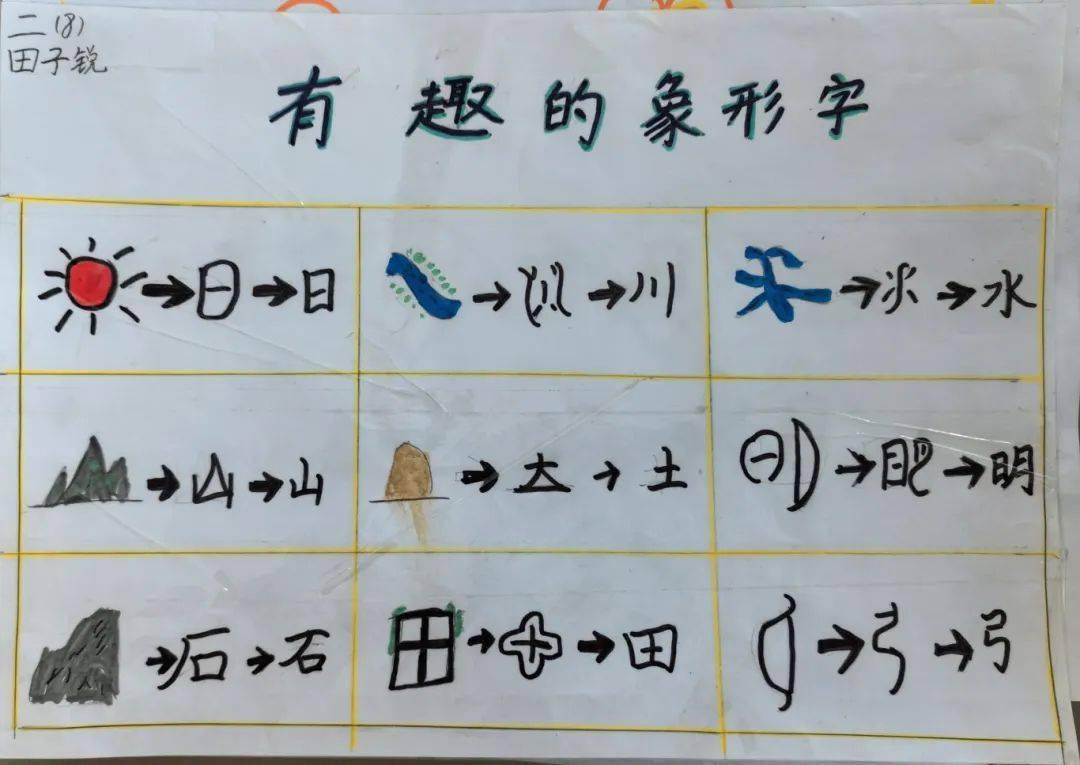 二(8)
田子锐
有趣的象形字
→日→日 →川→川 →水→水
→山→山 →土→土 →明→明
→石→石 →田→田 →弓→弓